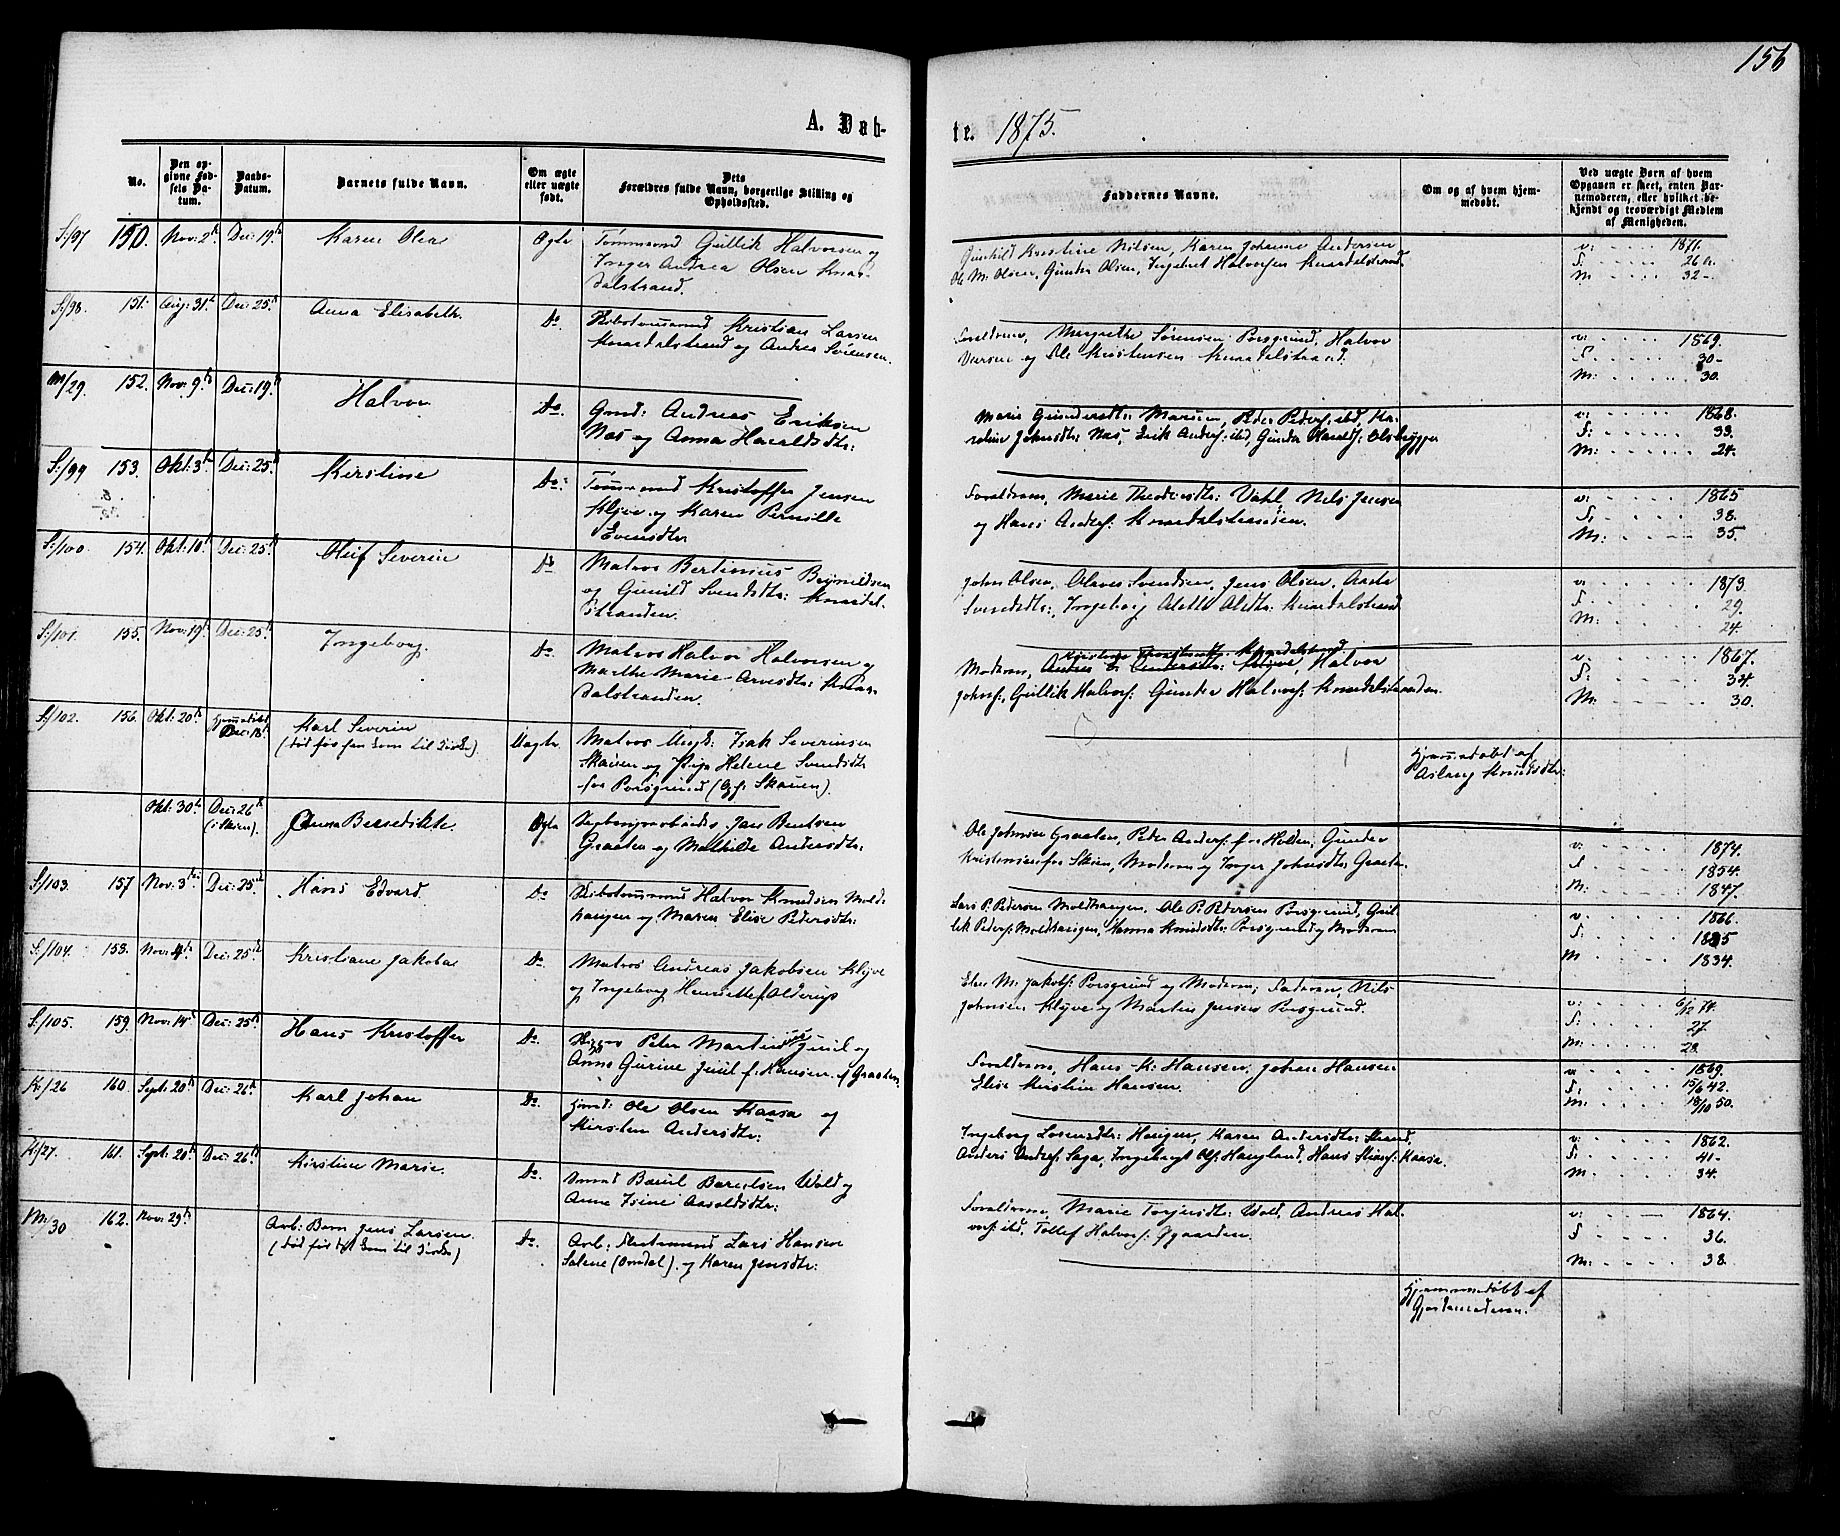 156
A. Døb-
te. 1875.
No.
Den op-
givne Fød-
sels Da-
tum.
Daabs-
Datum.
Barnets fulde Navn.
Om ægte
eller uægte
født.
Dets
Forældres fulde Navn, borgerlige Stilling og
Opholdssted.
Faddernes Navne.
Om og af hvem hjem-
medøbt.
Ved uægte Børn af hvem
Opgaven er skeet, enten Bar-
nemoderen, eller hvilket be-
kjendt og troværdigt Medlem
af Menigheden.
S:/97 150. Nov: 2 Dec: 19 Karen Olea Ægte Tømmermd Gullik Halvorsen og
Inger Andrea Olsen Knar-
dalstrand.
Gunhild Kristine Nilsen, Karen Johanne Andersen
Ole M. Olsen, Gunder Olsen, Ingebret Halvorsen Knardalstrand.
v: 1871.
F: 26
M: 32
S:/98. 151. Aug: 31 Dec: 25 Anna Elisabeth Do Kristian Larsen
Knardalstrand og Andrea Sørensen.
Forældrene, Margrethe Sørensen Porsgrund, Halvor
Iversen og Ole Kristensen Knardalstrand.
v: 1869.
F: 30
M: 30.
M/29. 152. Nov: 9 Dec: 19 Halvor Do Gmd: Andreas Eriksen
Næs og Anna Haraldsdtr:
Maren Gundersdtr: Peder Peders: ibd, Ka-
roline Johnsdtr: Næs, Erik Anders: ibd, Gunder Olsbrygge
v: 1868.
F: 33.
M: 24.
S:/99 153. Okt: 3 Dec: 25 Kirstine Do: Kristoffer Jensen
Klyve og Karen Pernille
Evensdtr
Forældrene, Marie Theodorsdtr: Vahl, Nils Jensen
og Hans Anders: Knardalstranden.
v: 1865
F: 38.
M: 35.
S:/100. 154. Okt: 10 Dec: 25 Oluf Severin Do Matros Bertinius Brynildsen
og Gunild Svendsdtr: Knardal-
stranden.
John Olsen, Olaves Svendsen, Jens Olsen, Aaste
Svendsdtr:, Ingeborg Alette Olsdtr: Knardalstrand
v: 1873.
F: 29.
M: 24.
S:/101. 155. Nov: 19 Dec: 25 Ingeborg. Do Matros Halvor Halvorsen og
Marthe Marie Arvesdtr: Knar-
dalstranden
Moderen, Halvor
Johns:, Gullik Halvors: Gunder Halvors: Knardalstranden.
v: 1867.
F: 34.
M: 30.
S:/102. 156. Okt: 20 Hjemmedøbt
Dec: 18 Karl Severin
(død før han kom til Kirke). Uægte Matros Ungk: Isak Severinsen
Skauen og Pige Helene Svendsdtr
fra Porsgrund (Gjp. Skauen).
Hjemmedøbt af
Aslaug Knudsdtr:
Okt: 30 Dec: 26
(i Skien). Anna Benedikte. Ægte Jens Bentsen
Graaten og Mathilde Andersdtr:
Ole Johnsen Graaten, Peder Anders: fra Holden, Gunder
Kristensen fra Skien, Moderen og Inger Johnsdtr: Graaten
v: 1874.
F 1854.
M: 1847.
S:/103. 157 Nov: 3 Dec: 25 Hans Edvard Do Halvor Knudsen Mold-
haugen og Maren Elise Pedersdtr:
Lars P. Pedersen Moldhaugen, Ole P. Pedersen Porsgrund, Gul-
lik Peders: Moldhaugen, Hanna Knudsdtr: Porsgrund og Moderen
v: 1866.
F: 1835
M 1834.
S:/104. 158. Nov: 4 Dec: 25 Kristiane Jakoba Do Matros Andreas Jakobsen Klyve
og Ingeborg Henriette f. Olderup
Elen M. Jakobs: Porsgrund og Moderen; Faderen, Nils
Johnsen Klyve og Martin Jensen Porsgrund.
v: 6/12 74.
F: 27.
M: 28.
S:/105. 159 Nov: 14 Dec: 25 Hans Kristoffer Do Peter Martinius Juul og
Anne Gurine Juul f. Hansen. f Graaten
Forældrene, Hans K. Hansen, Johan Hansen
Elise Kirstin Hansen.
v: 1869.
F: 15/6 42.
M: 18/10 50.
K:/26 160. Sept: 20 Dec: 26 Karl Johan Do. Gmd: Ole Olsen Kaasa og
Kirsten Andersdtr:
Ingeborg Lorensdtr: Haugen, Karen Andersdtr: Strand,
Anders Anders: Saga, Ingebregt Ols: Haugland, Hans Kaasa.
v: 1862.
F: 41
M. 34.
K:/27. 161. Sept: 20 Dec: 26 Kirstine Marie. Do. Berentsen Wold og
Anne Isine Aasoldsdtr:
Forældrene, Marie Torjusdtr: Wold, Andreas Hal-
vors: ibd, Tollef Halvors: Øgaarden.
v: 1864.
F 36.
M: 38.
M:/30 162. Nov: 29 Avb: Barn Jens Larsen.
(død før det kom til Kirke) Do. Arb: Lars Hansen
Salene (Omdal). og Karen Jensdtr:
Hjemmedøbt af
Gjordemoderen.